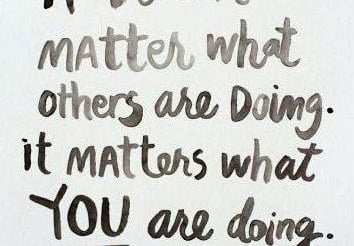 mAtter what
others are Doing.
it mAtters what
YOU are doing.